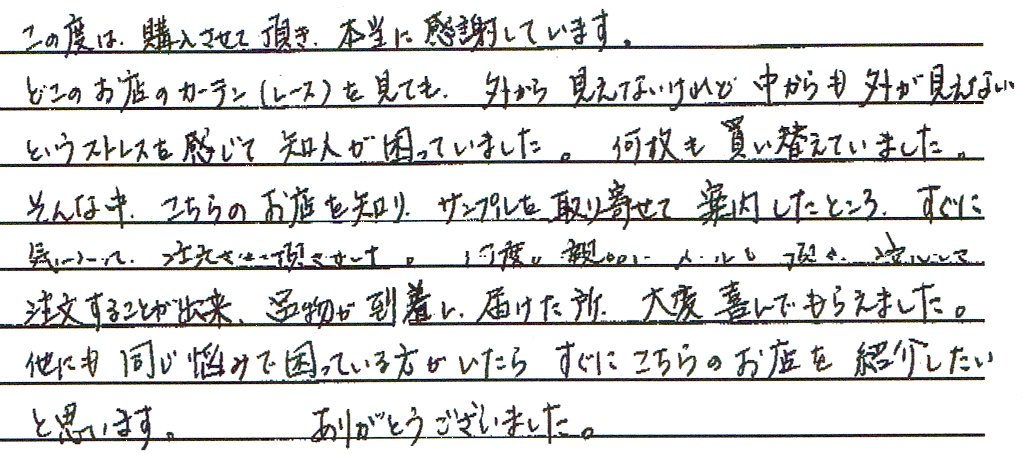 この度は、購入させて頂き、本当に感謝しています。
どこのお店のカーテン(レース)を見ても、外から見えないけれど中からも外が見えない
というストレスを感じて知人が困っていました。何枚も買い替えていました。
そんな中、こちらのお店を知り、サンプルを取り寄せて案内したところ、すぐに
気に入って、注文させて頂きました。何度も親切にメールも頂き、安心して
注文することが出来、品物が到着し、届けた所、大変喜んでもらえました。
他にも同じ悩みで困っている方がいたらすぐにこちらのお店を紹介したい
と思います。 ありがとうございました。